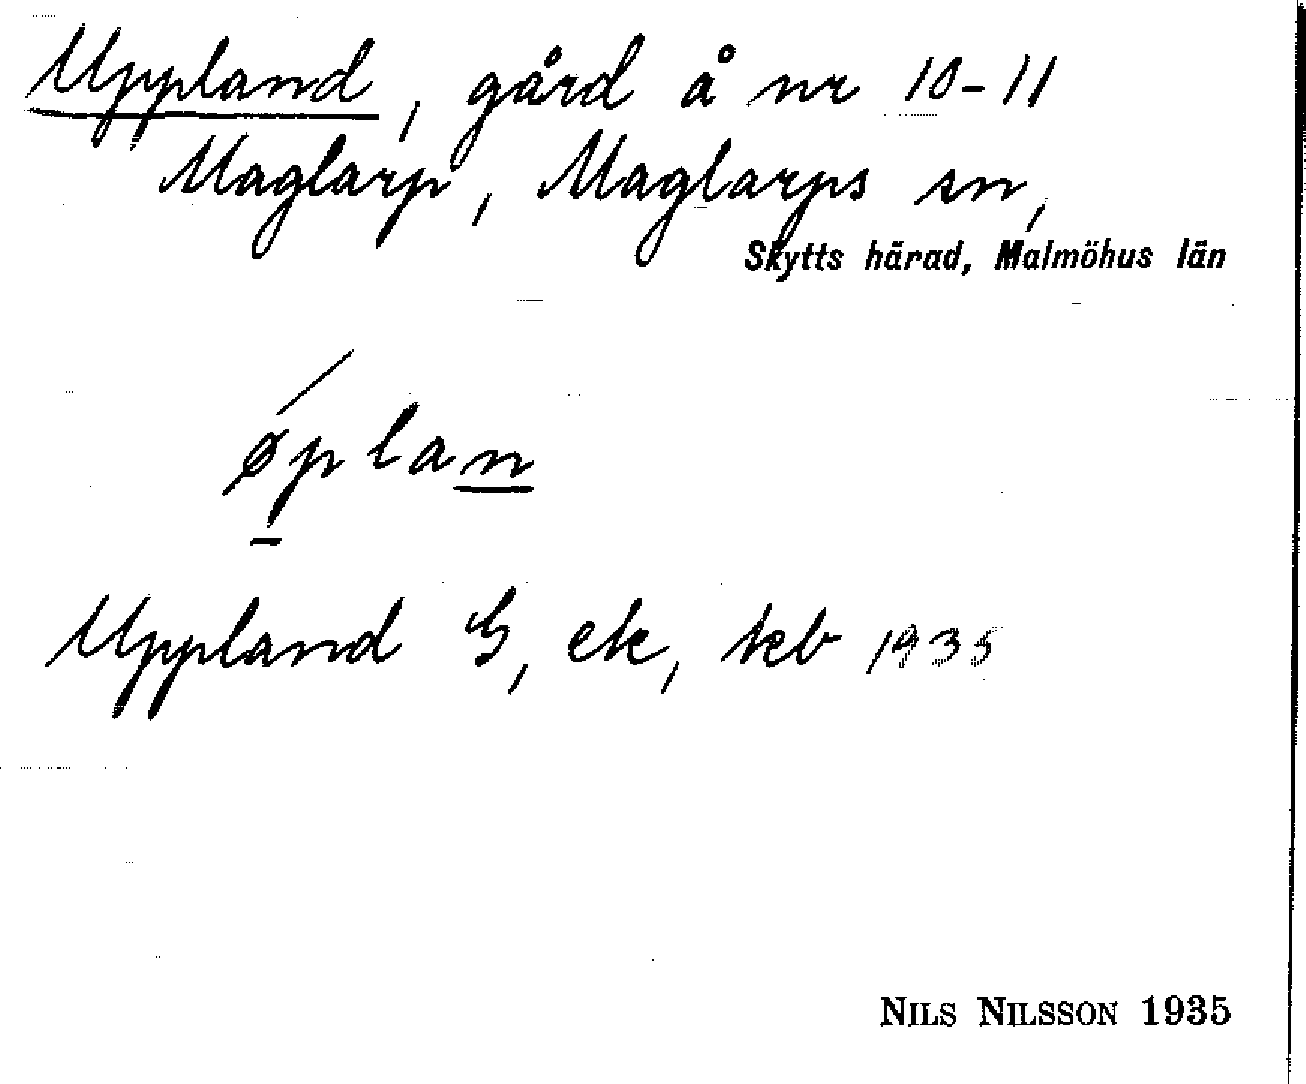 Uppland, gård å nr 10-11
Maglarp, Maglarps sn,
Skytts härad, Malmöhus län
ǿplan
Uppland G, ek, kb 1935
NILS NILSSON 1935